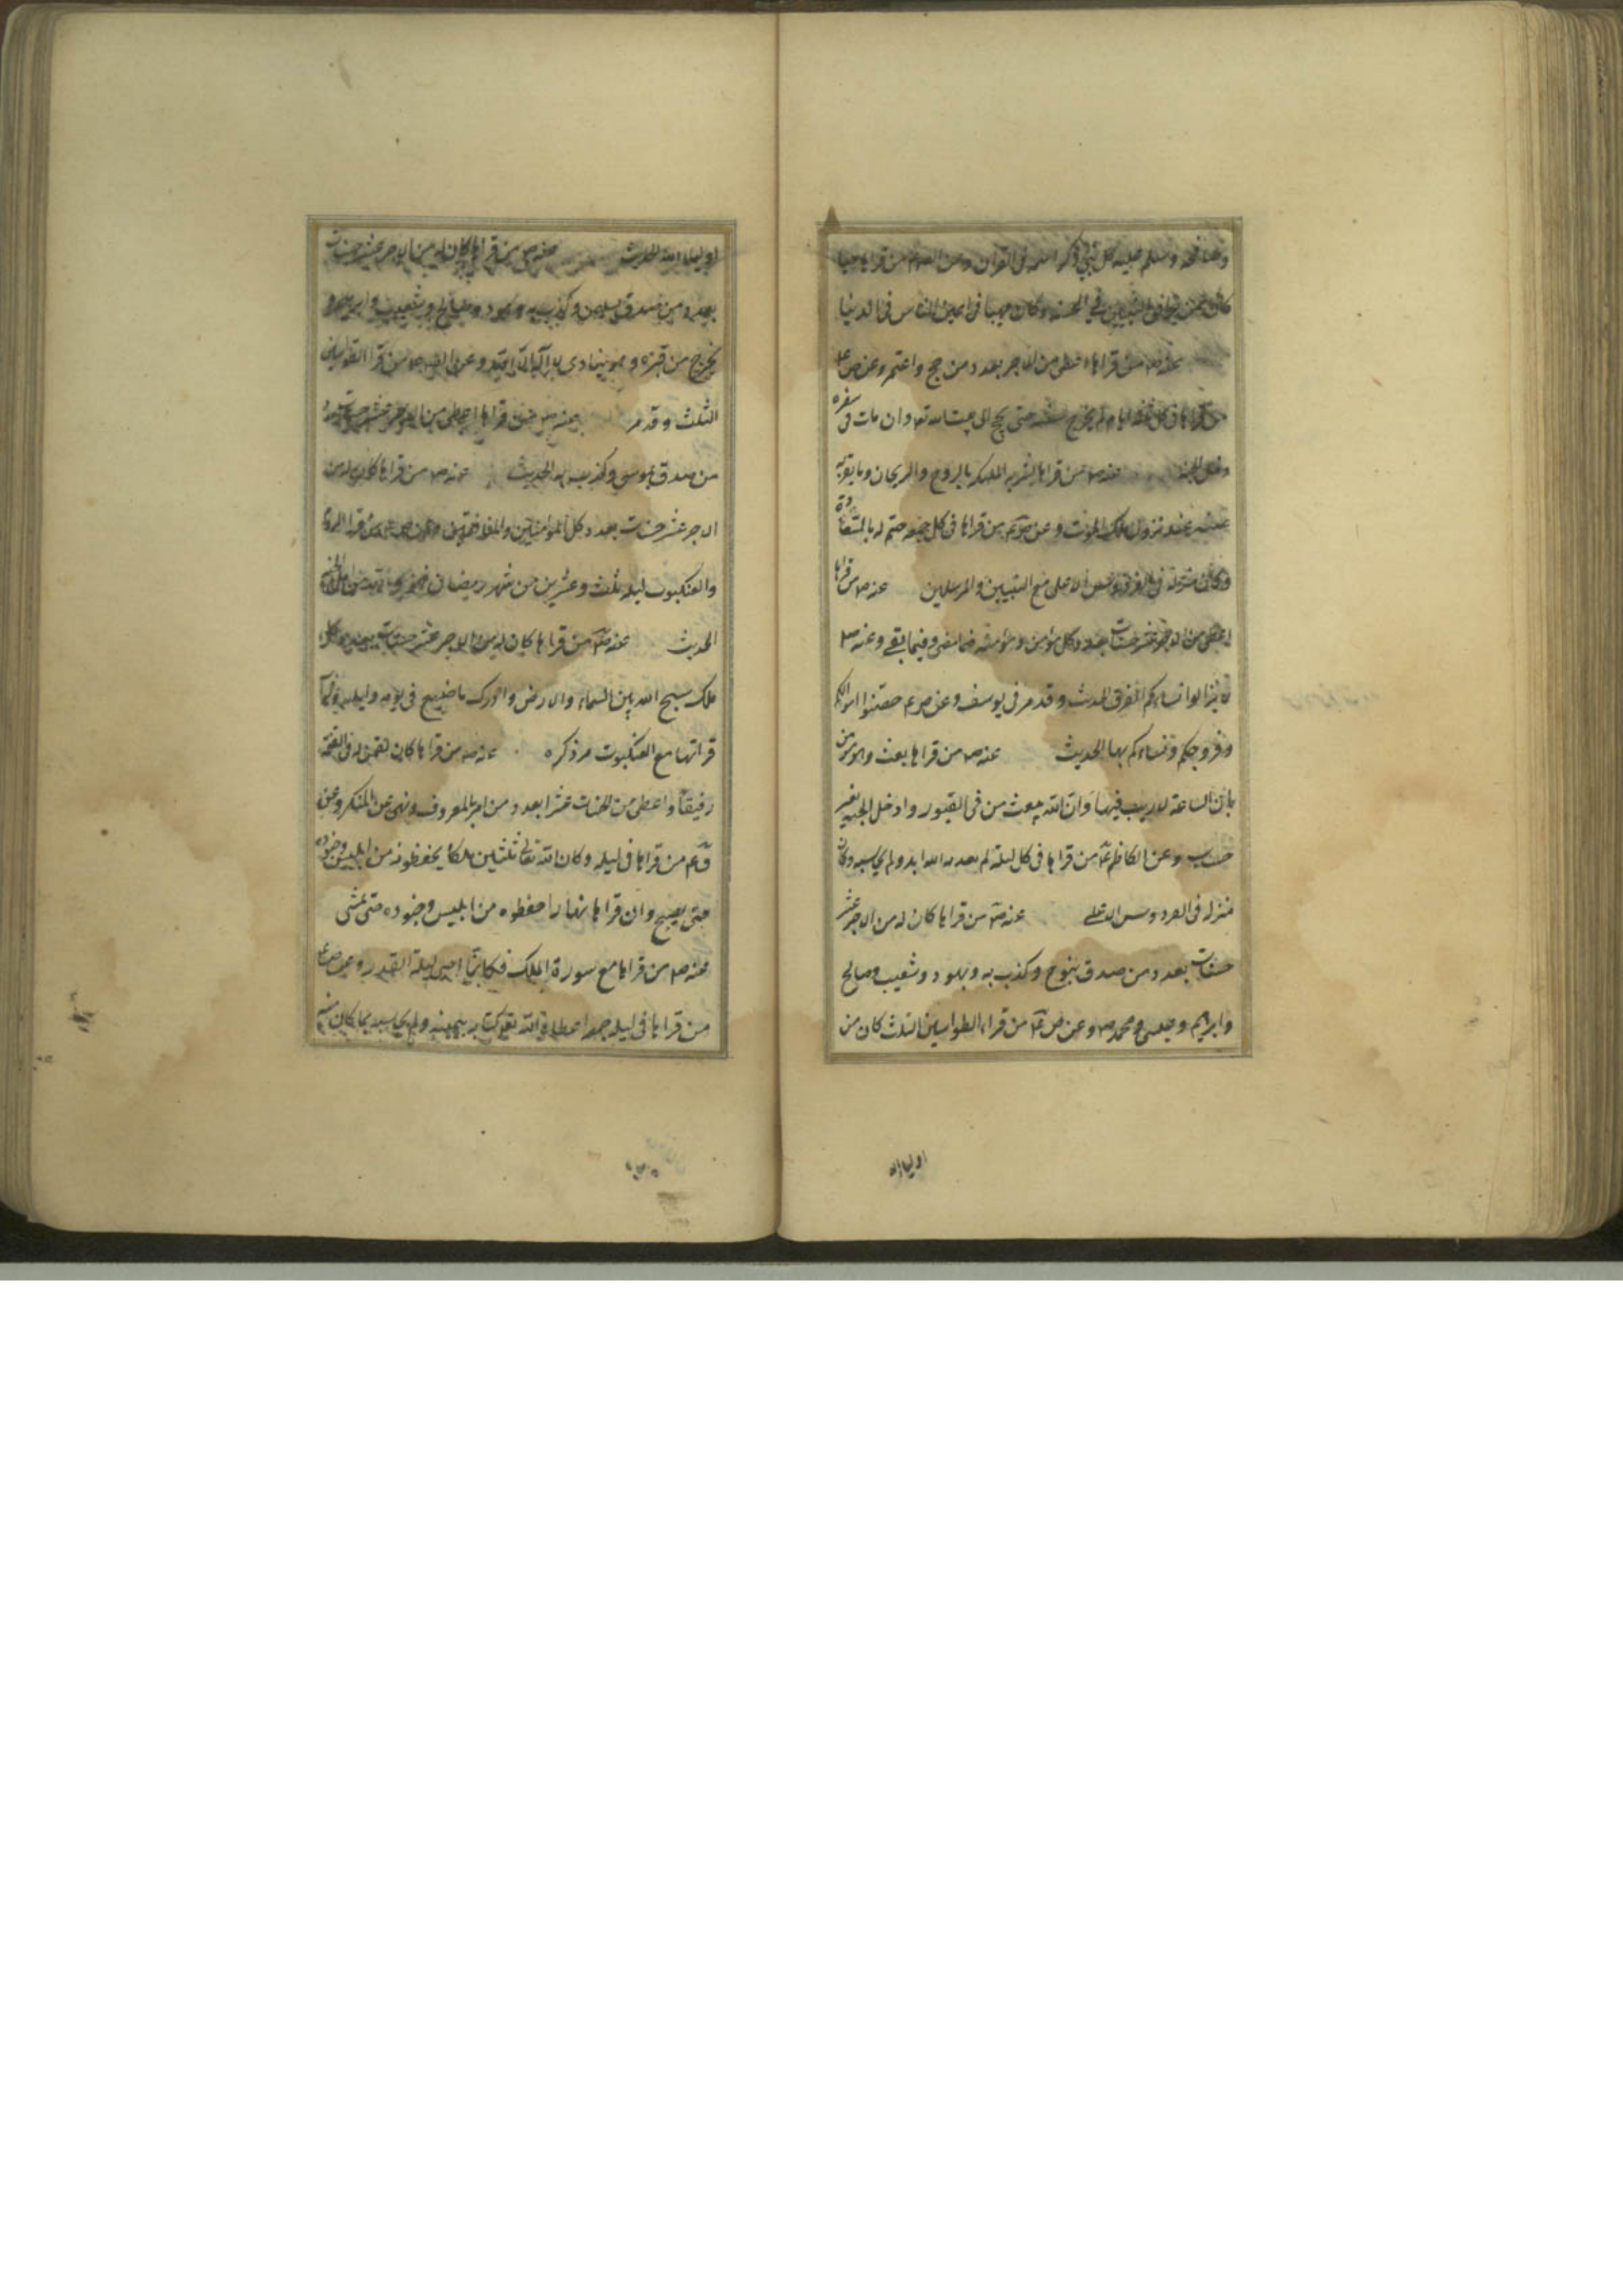 وصافحه وسلم عليه كل نبي ذكر اسمه في القرآن وعن الصم من قراها حبا
كان ممن في النبيين في الجنة وكان مهيبا في اعين الناس في الدنيا
عنه صم من قراها اعطي من الاجر بعدد من حج واعتمر وعن ص ع
من قراها في كل ثلثه ايام لم يخرج سنته حتى يحج الى بيت الله تعا وان مات في سفره
دخل الجنة عنه صم من قراها بشرته الملئكه بالروح والريحان وما تقر به
عينه عند نزول ملك الموت وعن ص ع م من قراها في كل جمعه ختم له بالسعادة
وكان منزله في الفردوس الاعلى مع النبيين والمرسلين عنه صم من قراها
اعطي من الاجر عشر حسنات بعدد كل مؤمن ومؤمنة فيما مضى وفيما بقي وعنه صم
لا تنزلوا نساءكم الغرف الحديث وقد مر في يوسف وعن ص ع م حصنوا اموالكم
وفروجكم ونساءكم بها الحديث عنه صم من قراها بعث وهو مؤمن
بان الساعة لا ريب فيها وان الله يبعث من في القبور وادخل الجنة بغير
حساب وعن الكاظم ع م من قراها في كل ليلة لم يعذبه الله ابدا ولم يحاسبه وكان
منزله في الفردوس الاعلى عنه صم من قراها كان له من الاجر عشر
حسنات بعدد من صدق بنوح وكذب به وبهود وشعيب وصالح
وابرهيم وعيسى ومحمد صم وعن ص ع م من قراء الطواسين الثلث كان من
اولياء الله
اولياء الله الحديث عنه صم من قراها كان له من الاجر عشر حسنات
بعدد من صدق بسليمن وكذب به وهود وصالح وشعيب وابرهيم و
يخرج من قبره وهو ينادي لا اله الا الله وعن ص ع م من قرا الطواسين
الثلث وقد مر عنه صم من قراها اعطي من الاجر عشر حسنات بعدد
من صدق بموسى وكذب به الحديث عنه صم من قراها كان له من
الاجر عشر حسنات بعدد كل المؤمنين والمنافقين وعن ص ع م من قرا الروم
والعنكبوت ليله ثلث وعشرين من شهر رمضان فهو والله من اهل الجنة
الحديث عنه ص م من قراها كان له من الاجر عشر حسنات بعدد كل
ملك سبح الله بين السماء والارض وادرك ما ضيع في يومه وليله وثواب
قراتها مع العنكبوت مر ذكره عنه صم من قراها كان لقمن له في القيمة
رفيقا واعطي من الحسنات عشرا بعدد من امر بالمعروف ونهى عن المنكر وعن
ق ع م من قراها في ليله وكل الله تعالى ثلثين ملكا يحفظونه من ابليس وجنوده
حتى يصبح وان قراها نهارا حفظوه من ابليس وجنوده حتى يمسي
عنه صم من قراها مع سورة الملك فكانما احيى ليلة القدر وعن ص ع
من قراها في ليله جمعه اعطاه الله تع كتابه بيمينه ولم يحاسبه بما كان منه